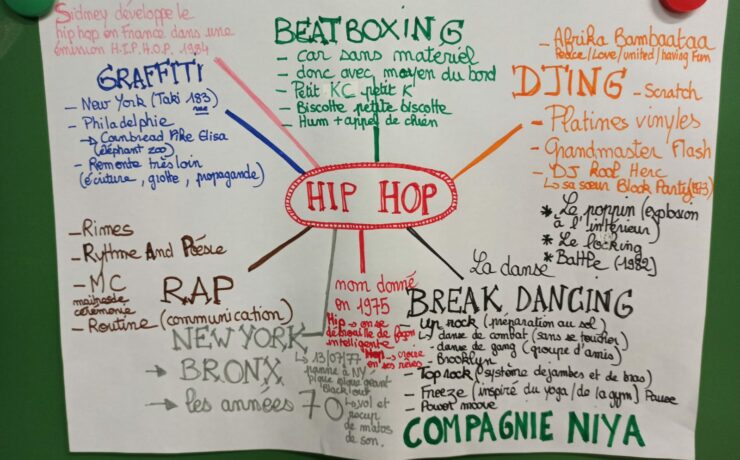 Sidney développe le
hip hop en France dans une
émission H.I.P.H.O.P. 1984
GRAFFITI
- New York (Taki 183)
rue
- Philadelphie
→ Cornbread Elisa
(éléphant zoo)
- Remonte très loin
(écriture, grotte, propagande)
BEATBOXING
- car sans materiel
- donc avec moyen du bord
- Petit KC petit K
- Biscotte petite biscotte
- Hum + appel de chien
- Afrika Bambaataa
Peace/Love/united/having Fun
DJING - Scratch
- Platines vinyles
- Grandmaster Flash
- DJ Kool Herc
↳ sa sœur Block Party (1973)
HIP HOP
- Rimes
- Rythme And Poésie
- MC
maitres de
cérémonie
- Routine (communication)
RAP
NEW YORK
→ BRONX
→ les années 70
↳ 13/07/77
panne à NY
pique nique géant
Black out
↳ vol et
recup
de matos
de son.
nom donné
en 1975
Hip → on se
débrouille de façon
intelligente
Hop → croire
en ses rêves
La danse
* Le poppin (explosion
à l'intérieur)
* Le locking
* Battle (1982)
BREAK DANCING
- Up rock (préparation au sol)
↳ danse de combat (sans se toucher)
- danse de gang (groupe d'amis)
- Brooklyn
- Top rock (système de jambes et de bras)
- Freeze (inspiré du yoga/de la gym) Pause
- Power moove
COMPAGNIE NIYA